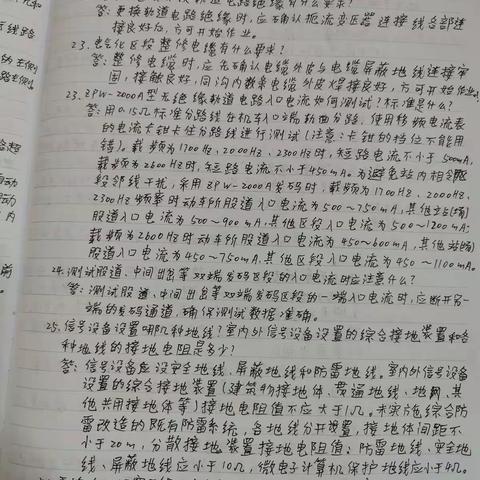 答:更换轨道电路绝缘时,应确认扼流变压器连接线各部连
接良好后,方可开始作业。
23.电气化区段整修电缆有什么要求?
答:整修电缆时,应先确认电缆外皮与电缆屏蔽地线连接牢
固,接触良好,同沟内数条电缆外皮焊接良好,方可开始作业。
23.ZPW-2000A型无绝缘轨道电路入口电流如何测试?标准是什么?
答:用0.15Ω标准分路线在机车入口端轨面分路,使用移频电流表
的电流卡钳卡住分路线进行测试(注意:卡钳的档位不能用
错)。载频为1700Hz、2000Hz、2300Hz时,短路电流不小于500mA,
载频为2600Hz时,短路电流不小于450mA。为避免站内相邻
段邻线干扰,采用ZPW-2000A发码时,载频为1700Hz、2000Hz、
2300Hz频率时动车所股道入口电流为500~750mA,其他站(场)
股道入口电流为500~900mA,其他区段入口电流为500~1200mA;
载频为2600Hz时动车所股道入口电流为450~600mA,其他站(场)
股道入口电流为450~750mA,其他区段入口电流为450~1100mA。
24.测试股道、中间出岔等双端发码区段的入口电流时应注意什么?
答:测试股道、中间出岔等双端发码区段的一端入口电流时,应断开另一
端的发码通道,确保测试数据准确。
25.信号设备设置哪几种地线?室内外信号设备设置的综合接地装置和各
种地线的接地电阻是多少?
答:信号设备应设安全地线、屏蔽地线和防雷地线。室内外信号设备
设置的综合接地装置(建筑物接地体、贯通地线、地网、其
他共用接地体等)接地电阻值不应大于1Ω。未实施综合防
雷改造的既有防雷系统,各地线分开设置,接地体间距不
小于20m,分散接地装置接地电阻值:防雷地线、安全地
线、屏蔽地线应小于10Ω,微电子计算机保护地线应小于4Ω。